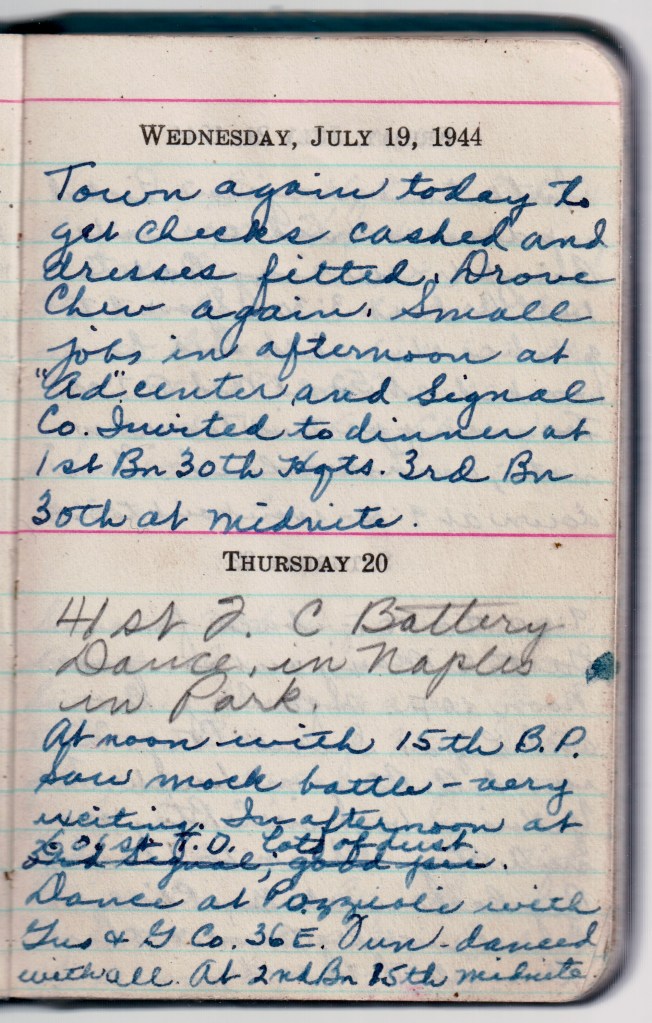 WEDNESDAY, JULY 19, 1944
Town again today to
get checks cashed and
dresses fitted. Drove
Chev again. Small
jobs in afternoon at
"Ad" center and Signal
Co. Invited to dinner at
1st Bn 30th Hqts. 3rd Bn
30th at midnite.
THURSDAY 20
41st F. C Battery
Dance, in Naples
in Park.
At noon with 15th B.P.
Saw mock battle - very
exciting. In afternoon at
601st T.D. lots of dust.
Signal, good
Dance at Pozzuoli with
Gus & G Co. 36 E. Fun - danced
with all. At 2nd Bn 15th midnite.